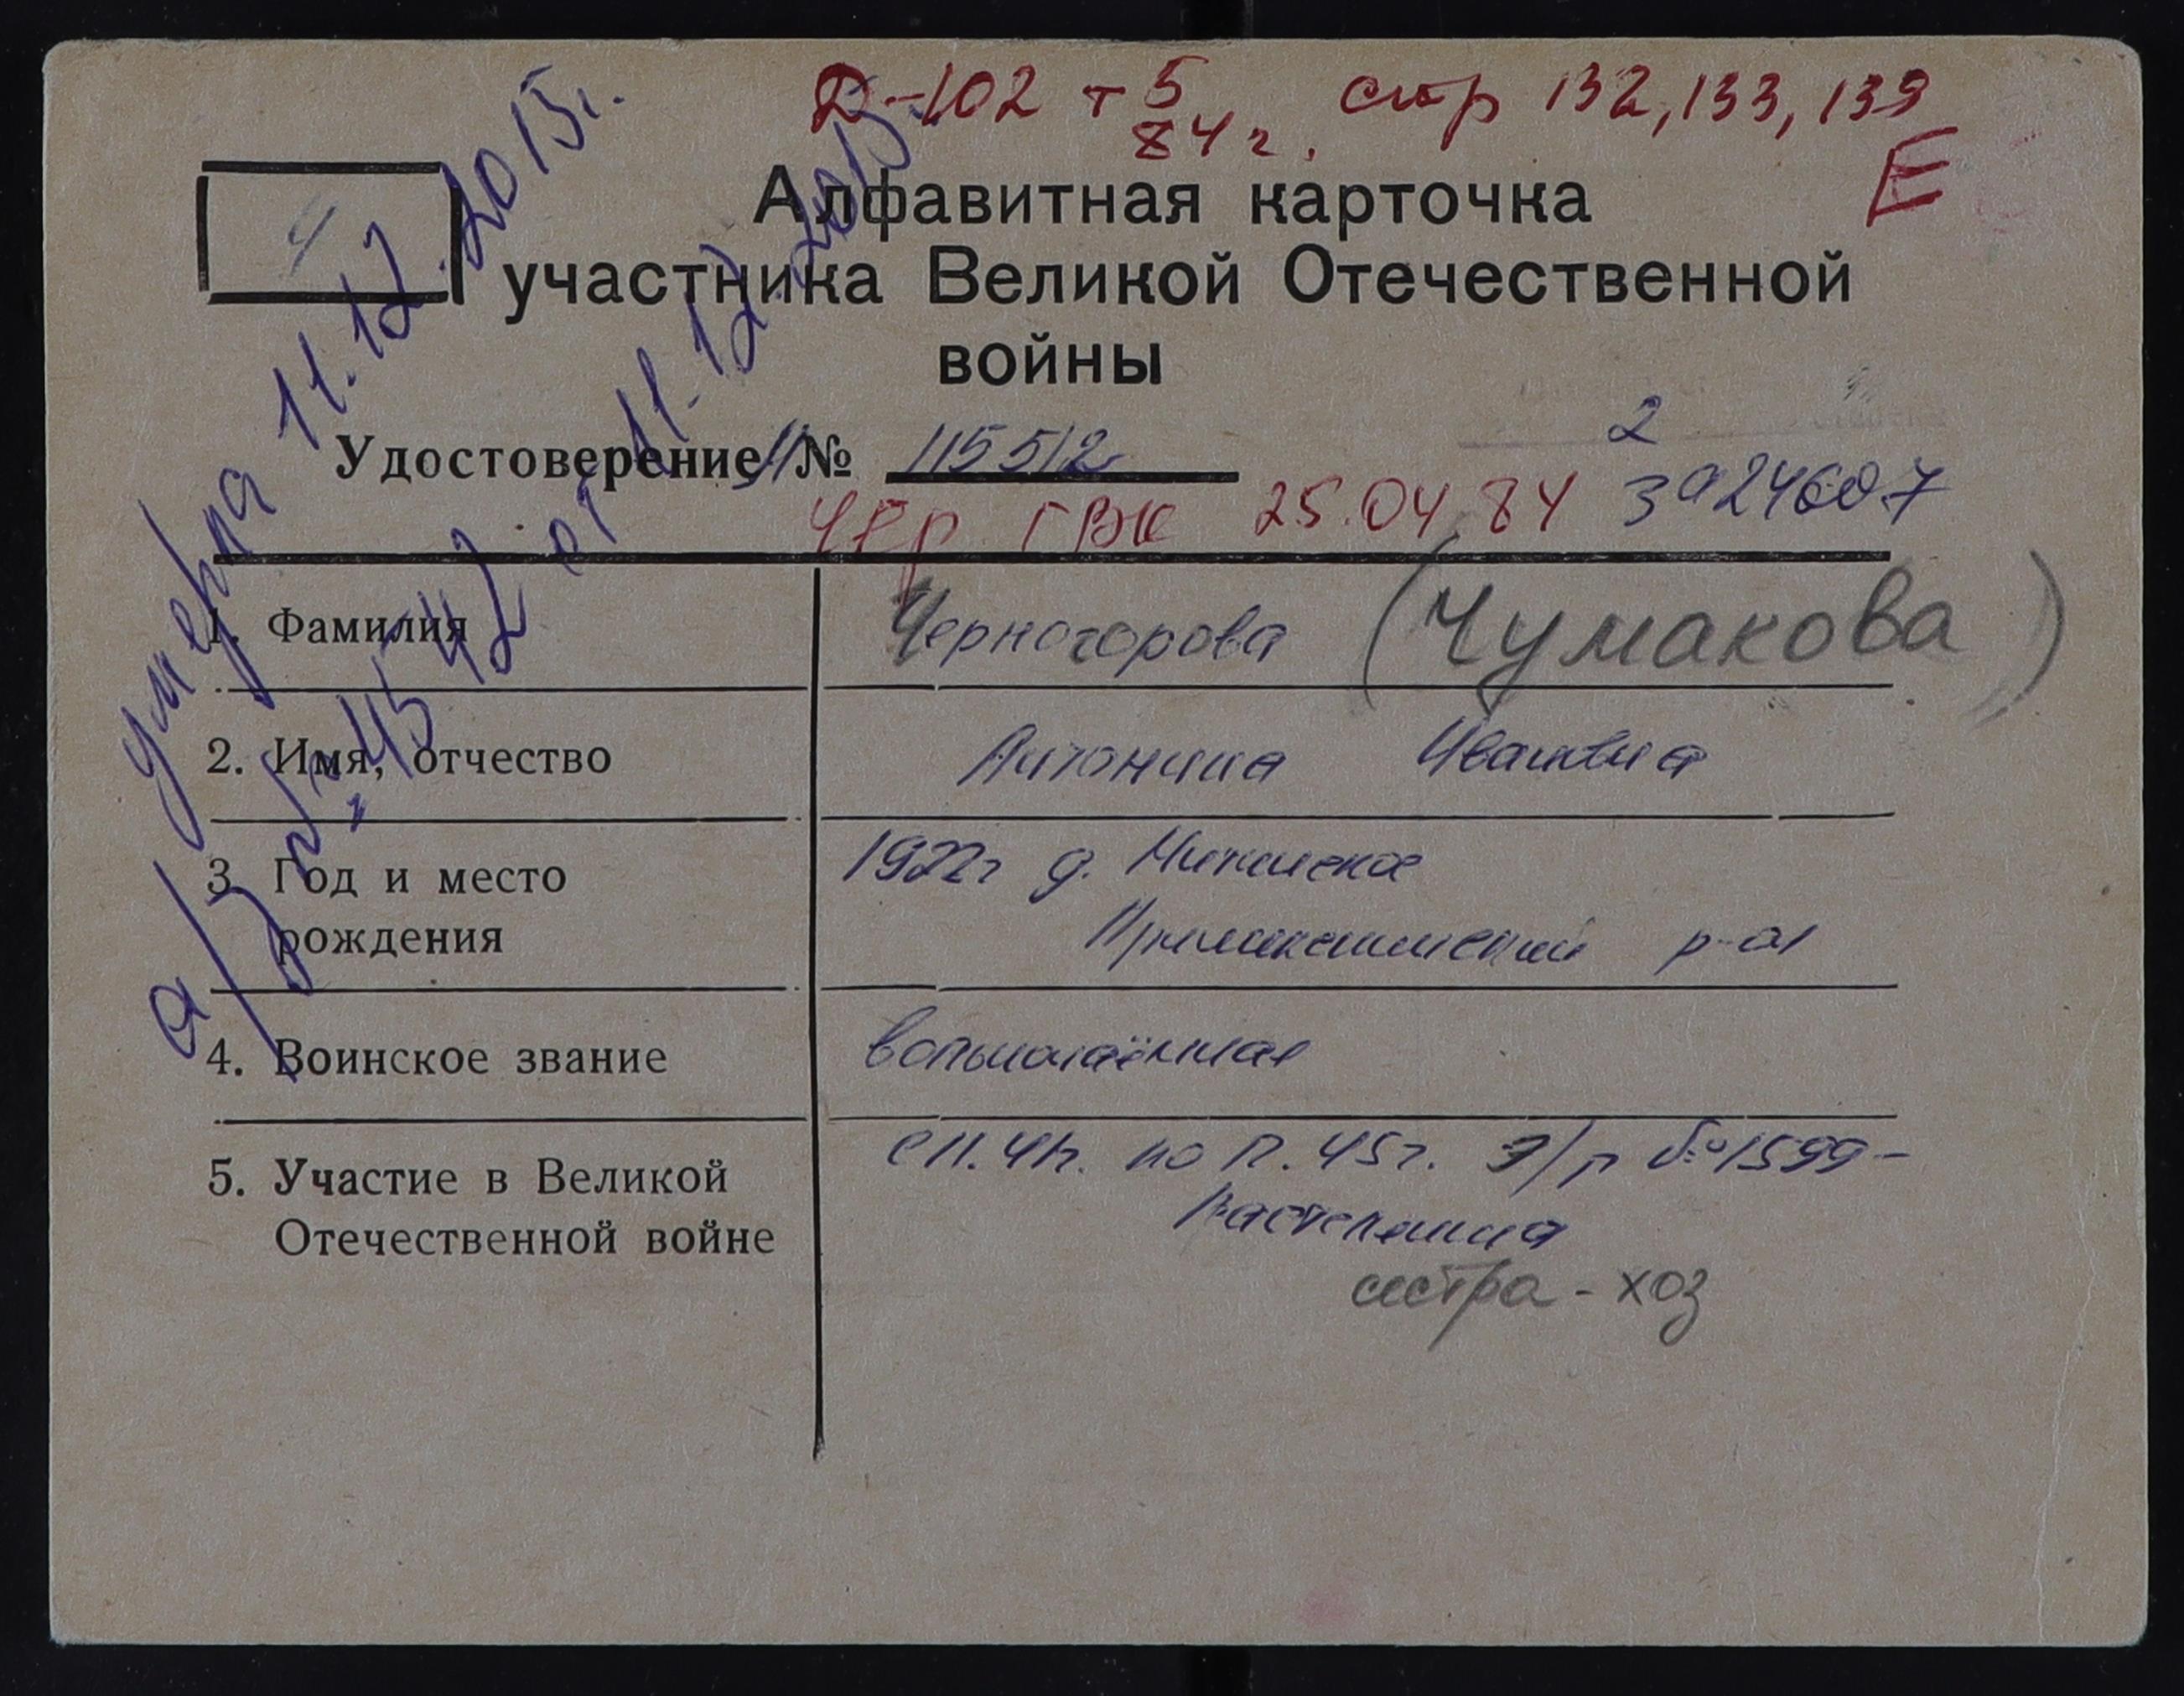 Д-102 т 5/84 г. стр 132, 133, 139
Е
Ч
Алфавитная карточка
участника Великой Отечественной
войны
Удостоверение Ч № 115512
2
ЧЕр ГВК 25.04.84 3924607
1. Фамилия Черногорова (Чумакова)
2. Имя, отчество Антонина Ивановна
3. Год и место 1922г д.
рождения р-он
4. Воинское звание вольнонаёмная
5. Участие в Великой с 11.41г. по 12.45г. э/г №1599-
Отечественной войне Кастелянша
сестра-хоз
умерла 11.12.2015г.
а/з №4542 от 11.12.2015